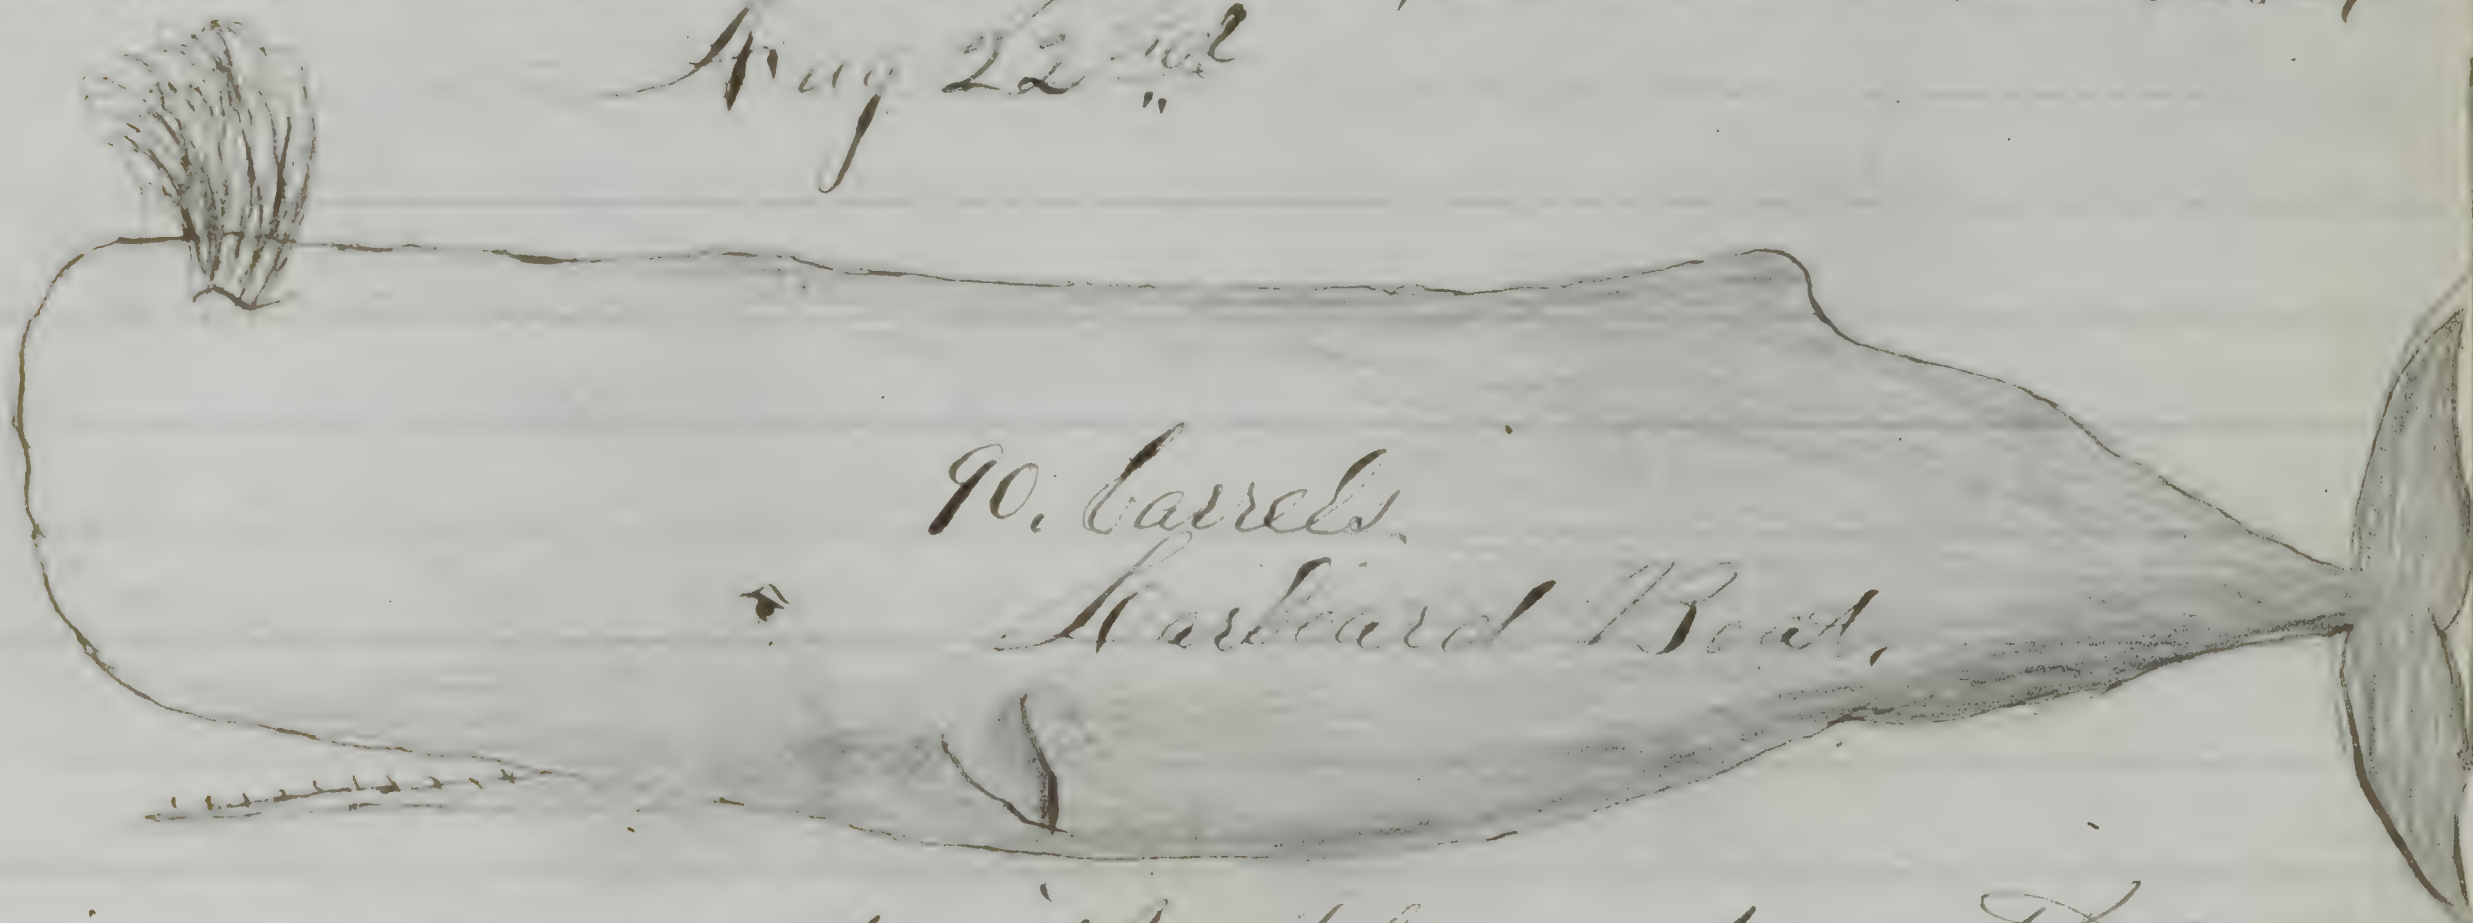 May 22nd
90. barrels.
Starboard Boat.